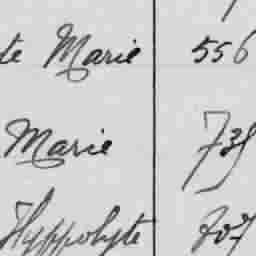 te Marie 556
Marie 735
Hyppolyte 707